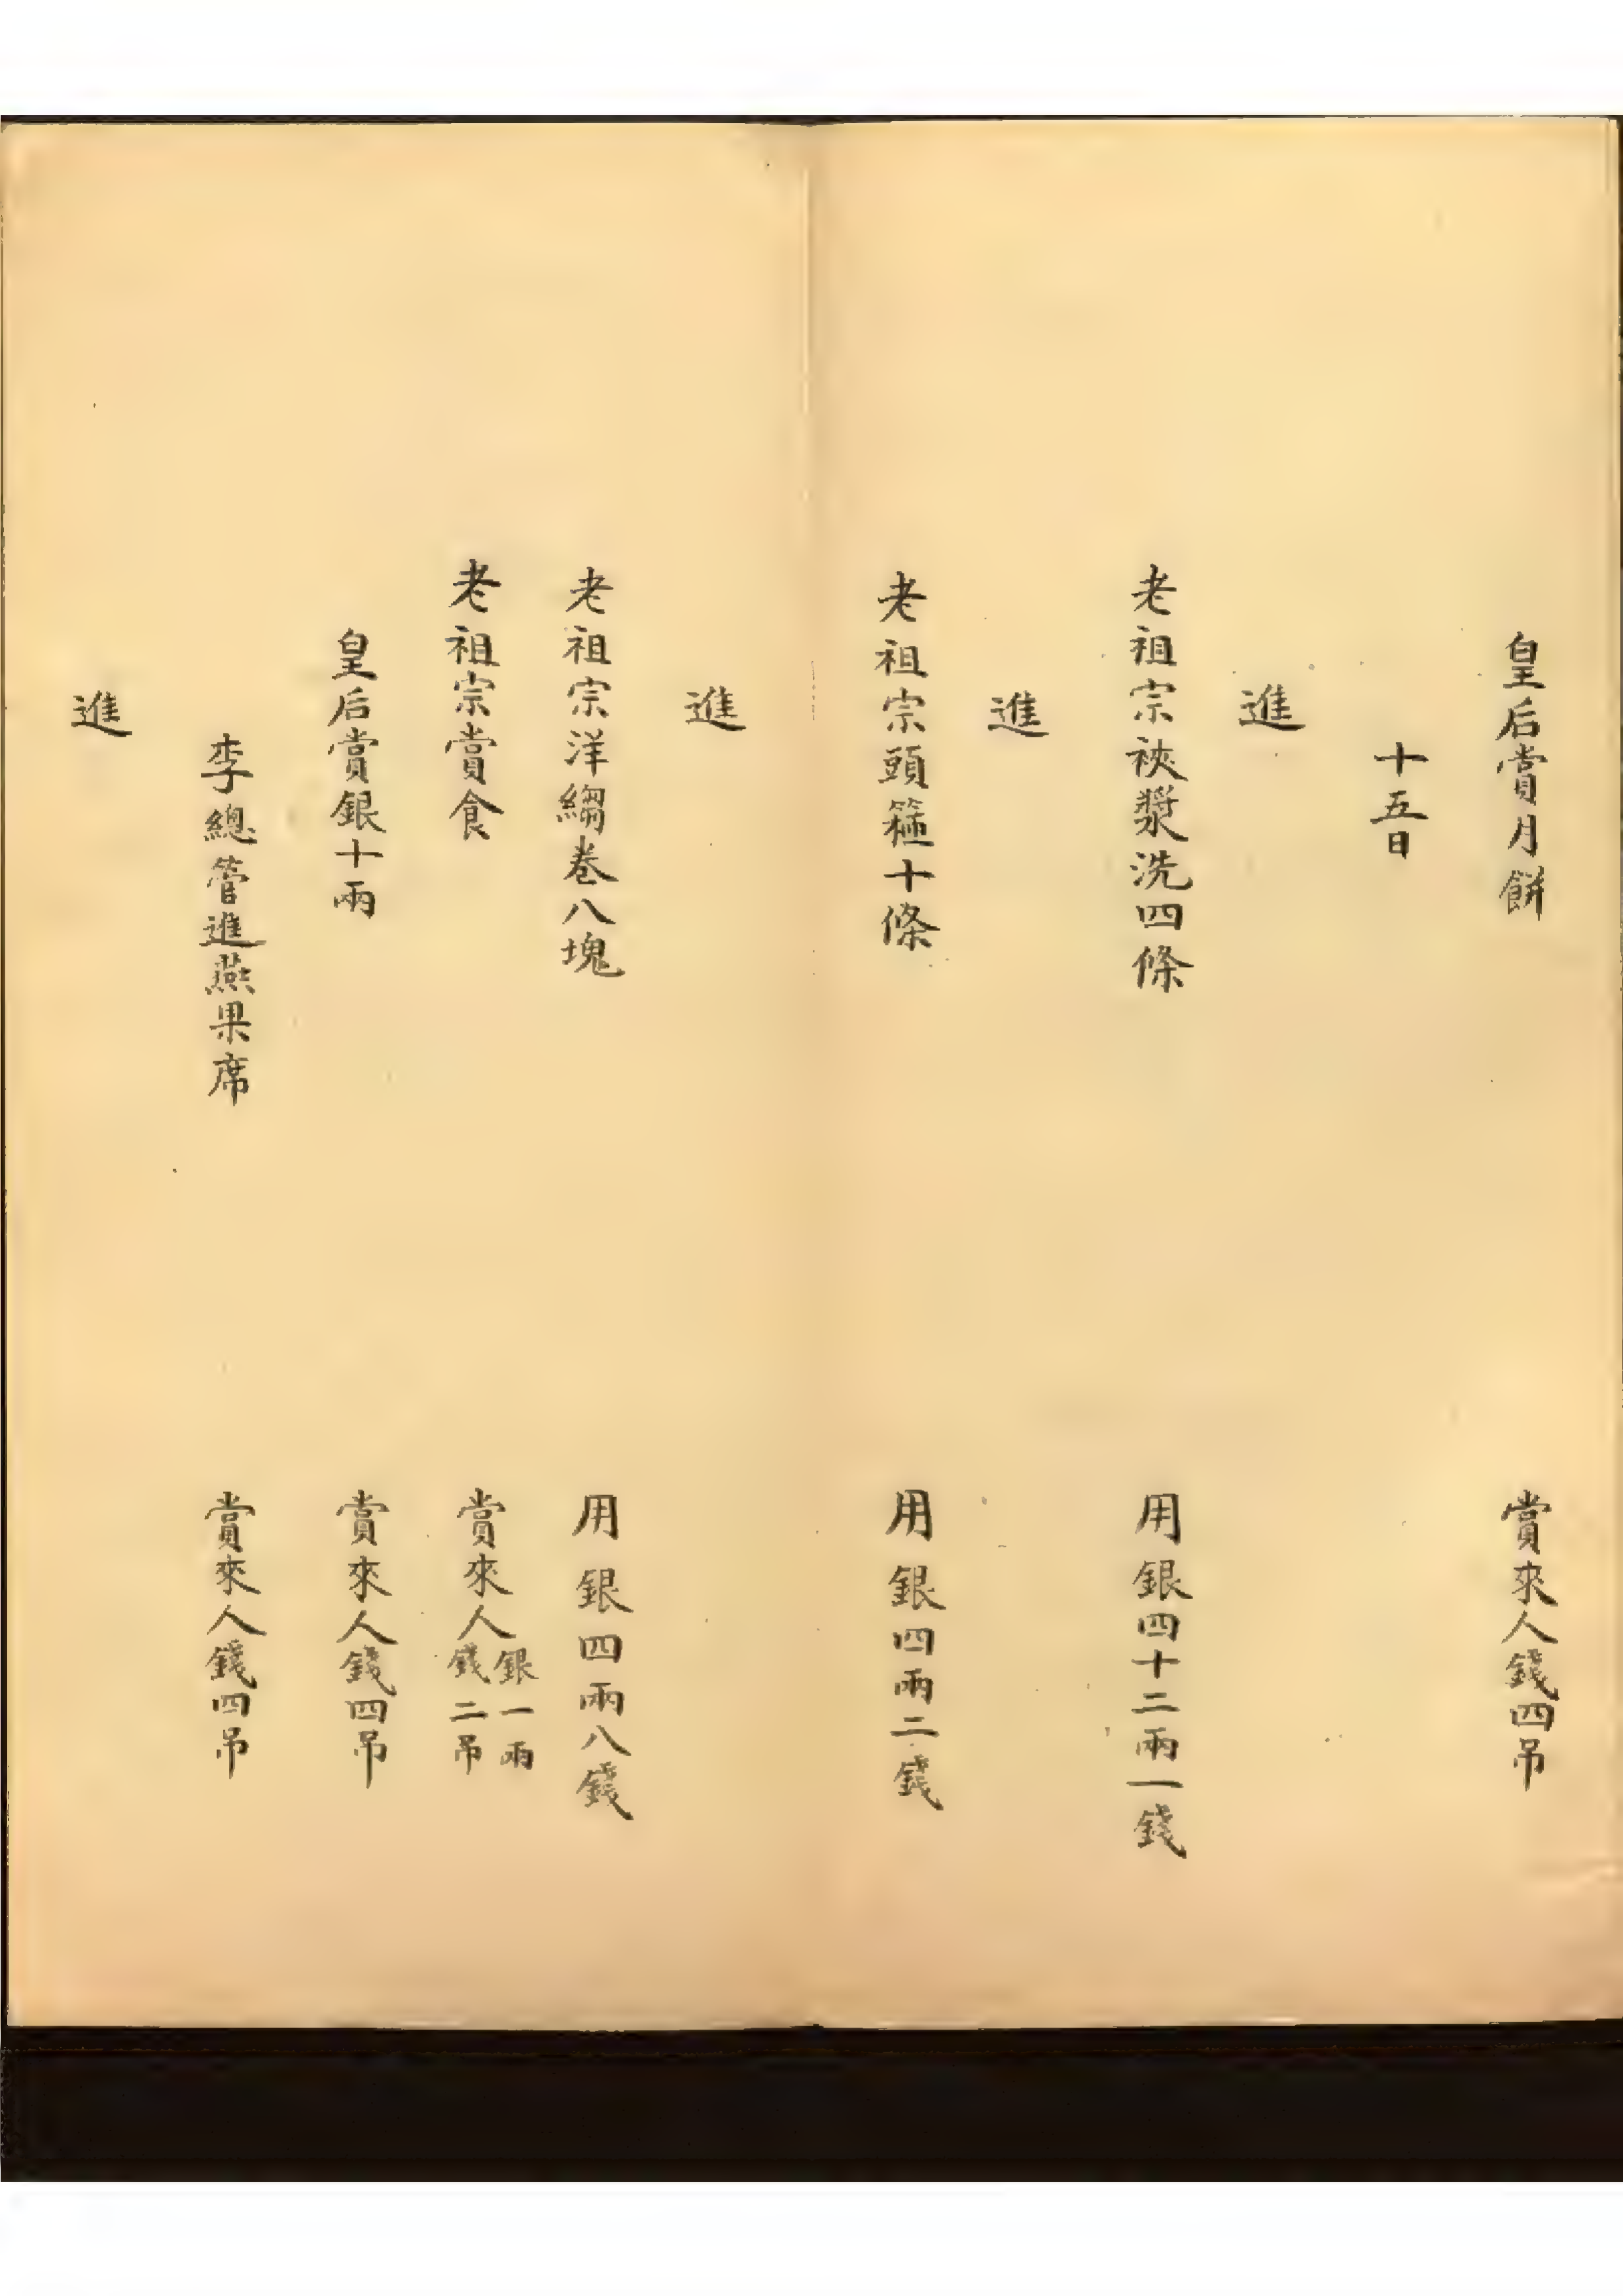 皇后賞月餅　賞來人錢四吊
十五日
進
老祖宗袂漿洗四條　用銀四十二兩一錢
進
老祖宗頭箍十條　用銀四兩二錢
進
老祖宗洋縐巻八塊　用銀四兩八錢
老祖宗賞食　賞來人銀一兩錢二吊
皇后賞銀十兩　賞來人錢四吊
李總管進燕果席　賞來人錢四吊
進